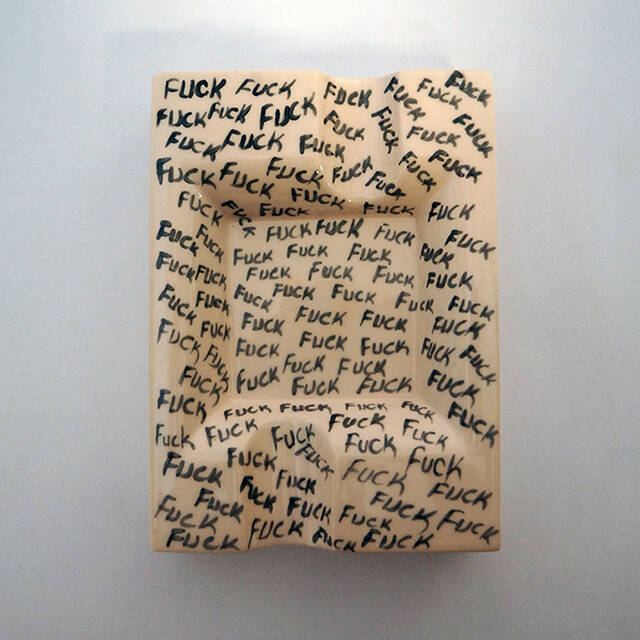 FUCK FUCK FUCK FUCK FUCK FUCK
FUCK FUCK FUCK FUCK FUCK FUCK FUCK
FUCK FUCK FUCK FUCK FUCK
FUCK FUCK FUCK FUCK FUCK
FUCK FUCK FUCK FUCK FUCK FUCK
FUCK FUCK FUCK FUCK FUCK
FUCK FUCK FUCK FUCK FUCK FUCK FUCK
FUCK FUCK FUCK FUCK FUCK FUCK
FUCK FUCK FUCK FUCK FUCK FUCK FUCK
FUCK FUCK FUCK FUCK FUCK FUCK
FUCK FUCK FUCK FUCK FUCK FUCK FUCK
FUCK FUCK FUCK FUCK FUCK
FUCK FUCK FUCK FUCK FUCK FUCK
FUCK FUCK FUCK FUCK FUCK
FUCK FUCK FUCK FUCK FUCK
FUCK FUCK FUCK FUCK FUCK
FUCK FUCK FUCK FUCK FUCK
FUCK FUCK FUCK FUCK
FUCK FUCK FUCK FUCK